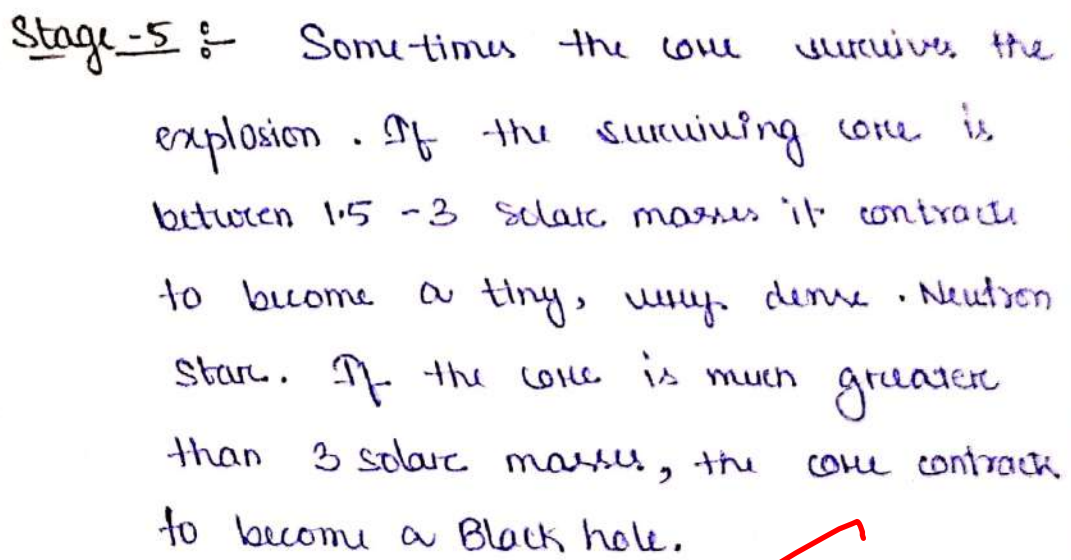 Stage-5 :- Sometimes the core survives the
explosion. If the surviving core is
between 1.5 - 3 solar masses it contracts
to become a tiny, very dense. Neutron
Star. If the core is much greater
than 3 solar masses, the core contracts
to become a Black hole.